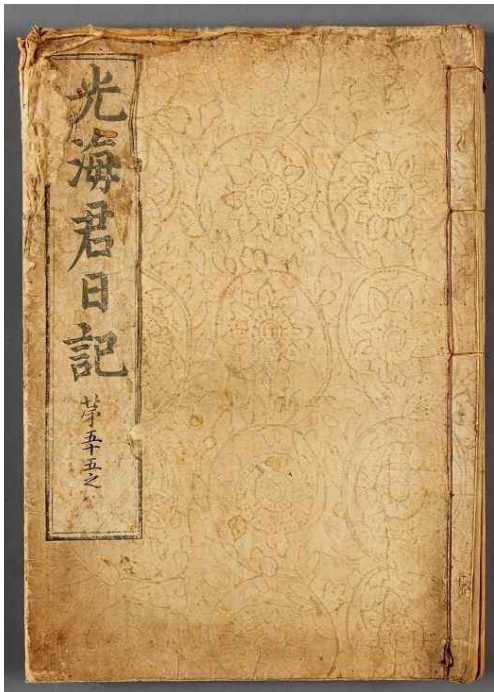 光海君日記
第五十五之